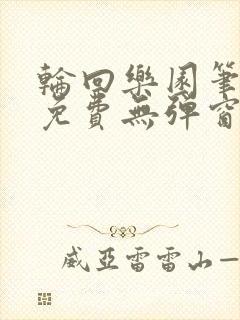 輪回樂園筆
免費無彈窗
威亞雷雷山一